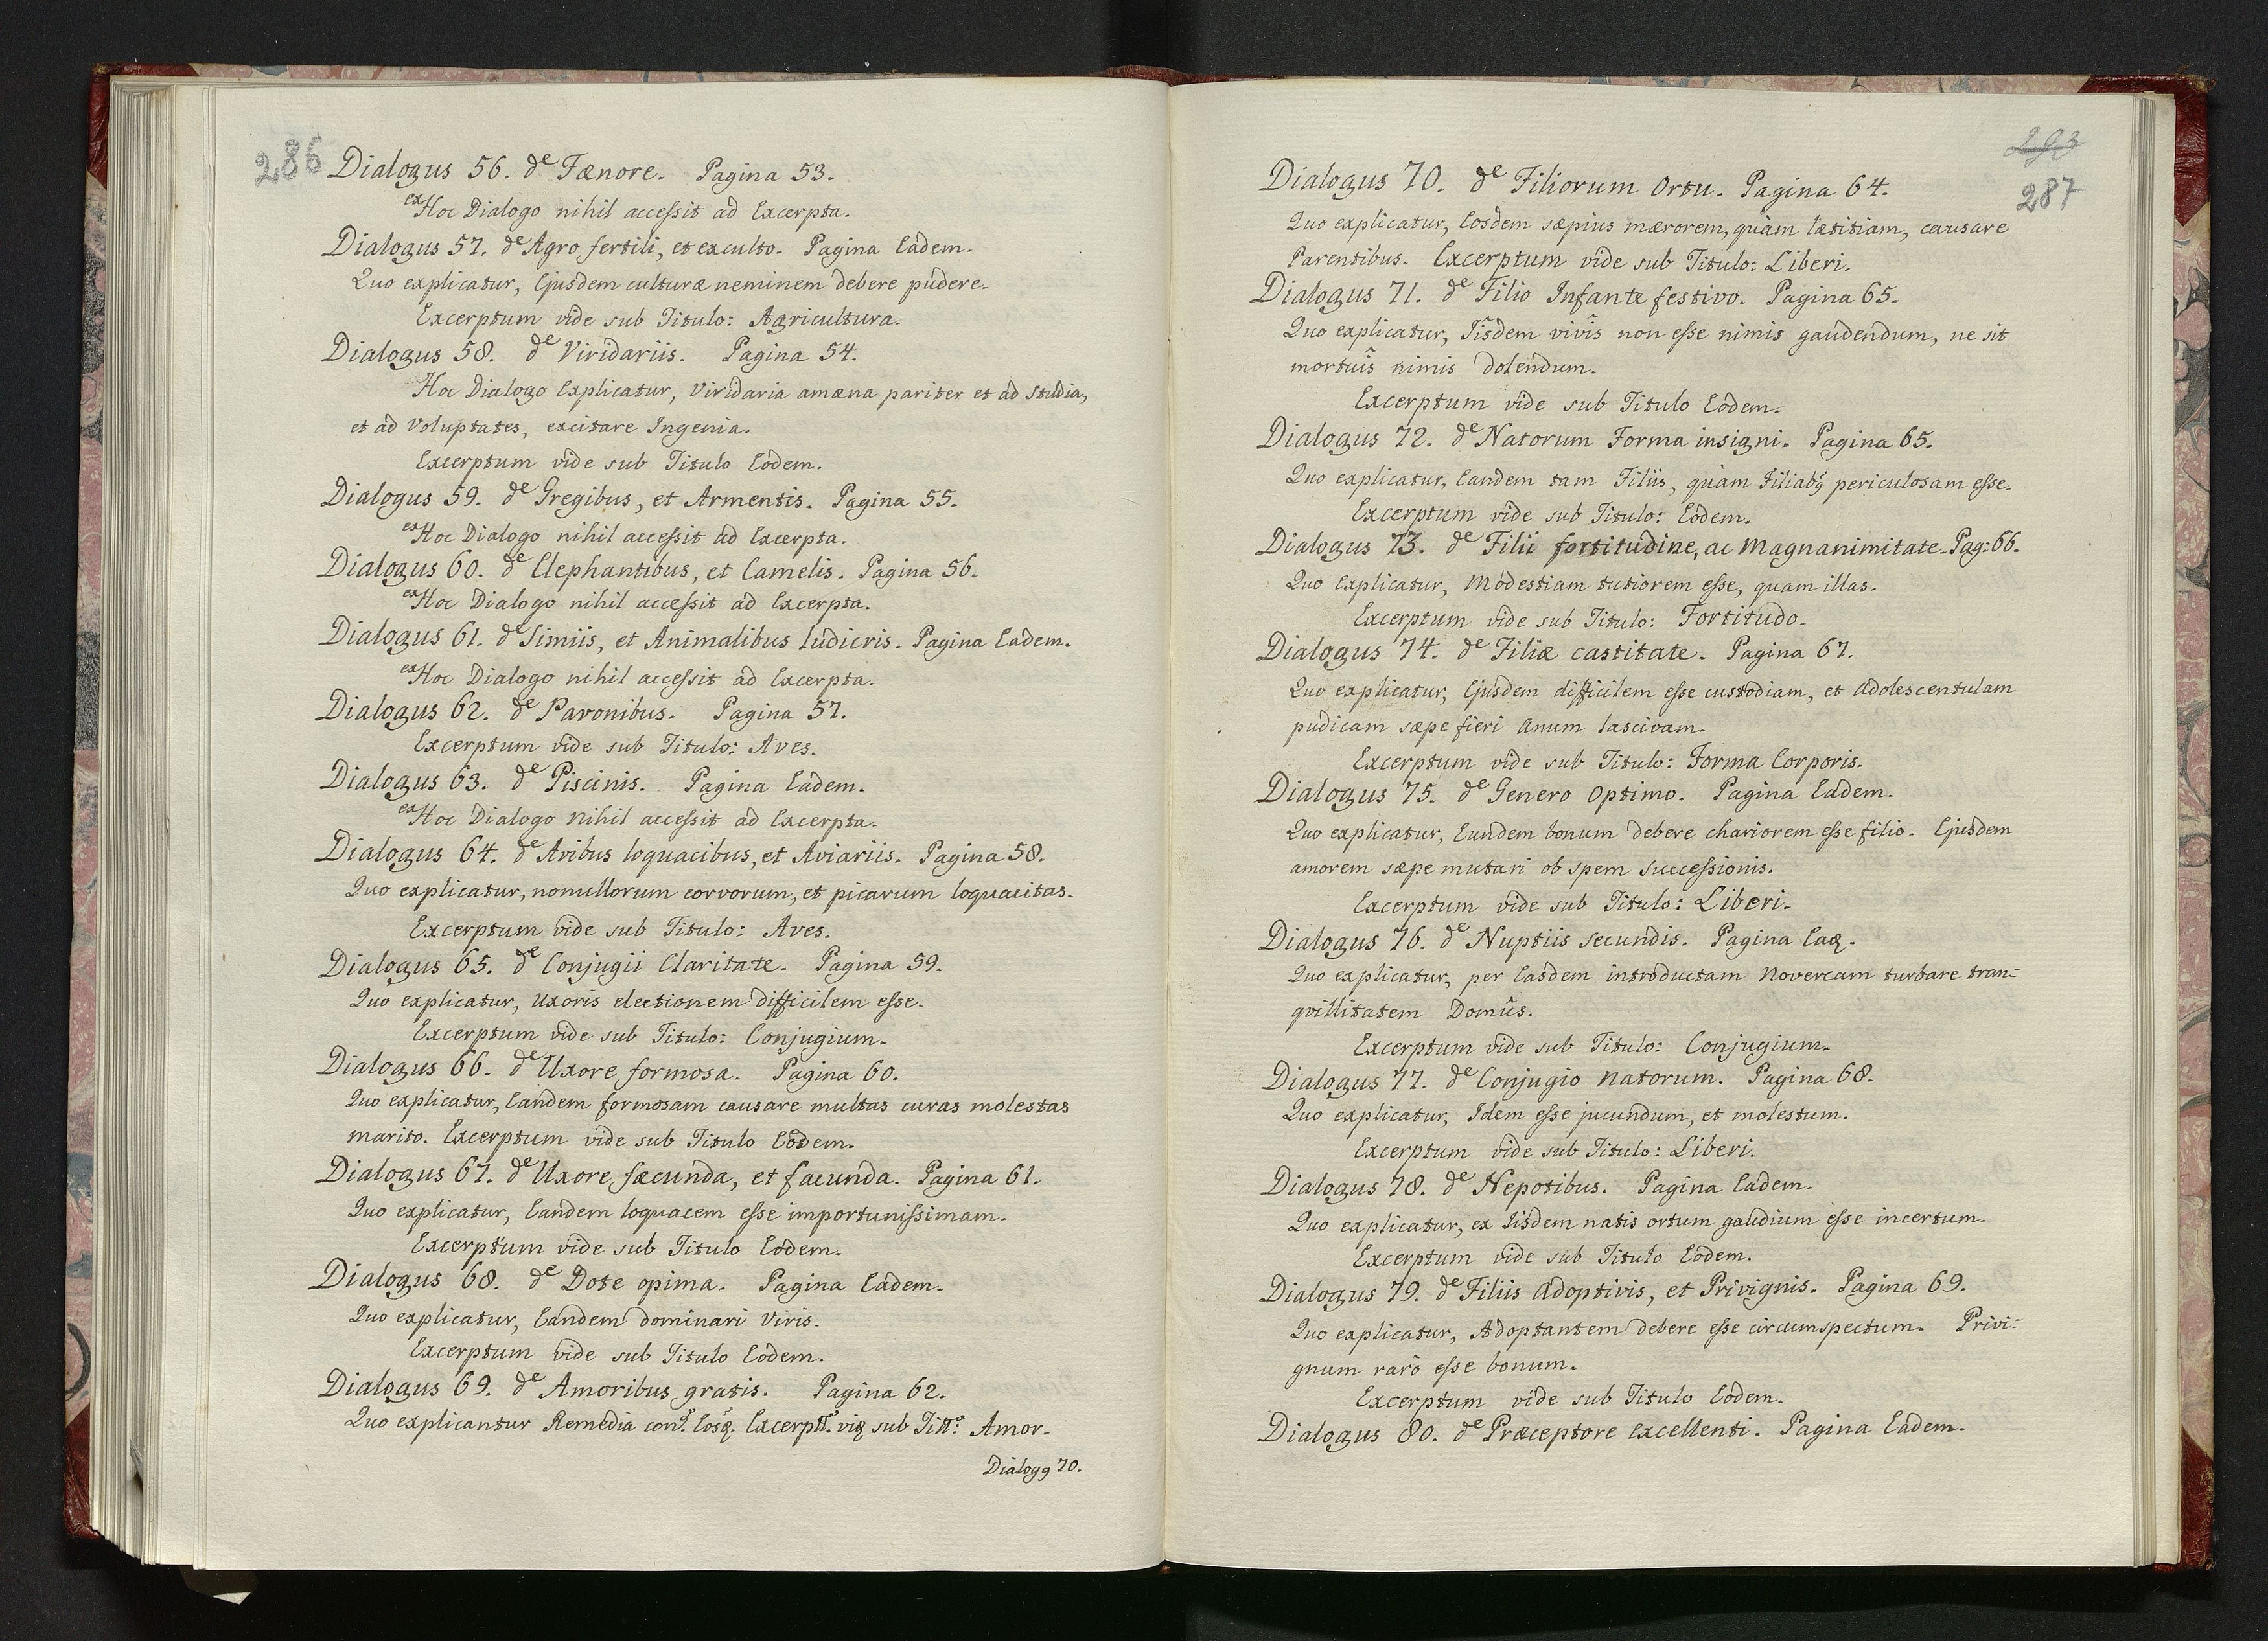 286
Dialogus 56. de Fænore. Pagina 53.
ex Hoc Dialogo nihil accessit ad Excerpta.
Dialogus 57. de Agro fertili, et exculto. Pagina Eadem.
Quo explicatur, Ejusdem culturæ neminem debere pudere.
Excerptum vide sub Titulo: Agricultura.
Dialogus 58. de Viridariis. Pagina 54.
Hoc Dialogo Explicatur, Viridaria amæna pariter et ad Studia,
et ad Voluptates, excitare Ingenia.
Excerptum vide sub Titulo Eodem.
Dialogus 59. de Gregibus, et Armentis. Pagina 55.
ex Hoc Dialogo nihil accessit ad Excerpta.
Dialogus 60. de Elephantibus, et Camelis. Pagina 56.
ex Hoc Dialogo nihil accessit ad Excerpta.
Dialogus 61. de Simiis, et Animalibus ludicris. Pagina Eadem.
ex Hoc Dialogo nihil accessit ad Excerpta.
Dialogus 62. de Pavonibus. Pagina 57.
Excerptum vide sub Titulo: Aves.
Dialogus 63. de Piscinis. Pagina Eadem.
ex Hoc Dialogo Nihil accessit ad Excerpta.
Dialogus 64. de Avibus loquacibus, et Aviariis. Pagina 58.
Quo explicatur, nonullorum corvorum, et picarum loquacitas.
Excerptum vide sub Titulo: Aves.
Dialogus 65. de Conjugii Claritate. Pagina 59.
Quo explicatur, Uxoris electionem difficilem esse.
Excerptum vide sub Titulo: Conjugium.
Dialogus 66. de Uxore formosa. Pagina 60.
Quo explicatur, Eandem formosam causare multas curas molestas
marito. Excerptum vide sub Titulo Eodem.
Dialogus 67. de Uxore fæcunda, et facunda. Pagina 61.
Quo explicatur, Eandem loquacem esse importunissimam.
Excerptum vide sub Titulo Eodem.
Dialogus 68. de Dote opima. Pagina Eadem.
Quo explicatur, Eandem dominari Viris.
Excerptum vide sub Titulo Eodem.
Dialogus 69. de Amoribus gratis. Pagina 62.
Quo explicantur Remedia sub Amor.
Dialogꝯ 70.
293
287
Dialogus 70. de Filiorum Ortu. Pagina 64.
Quo explicatur, Eosdem sæpius mærorem, quàm lætitiam, causare
Parentibus. Excerptum vide sub Titulo: Liberi.
Dialogus 71. de Filio Infante festivo. Pagina 65.
Quo explicatur, Iîsdem vivîs non esse nimis gaudendum, ne sit
mortuîs nimis dolendum.
Excerptum vide sub Titulo Eodem.
Dialogus 72. de Natorum Forma insigni. Pagina 65.
Quo explicatur, Eandem tam Filiis, quàm Filiabꝯ periculosam esse.
Excerptum vide sub Titulo: Eodem.
Dialogus 73. de Filii fortitudine, ac Magnanimitate. Pag: 66.
Quo Explicatur, Modestiam tutiorem esse, quam illas.
Excerptum vide sub Titulo: Fortitudo.
Dialogus 74. de Filiæ castitate. Pagina 67.
Quo explicatur, Ejusdem difficilem esse custodiam, et Adolescentulam
pudicam sæpe fieri Anum lascivam.
Excerptum vide sub Titulo: Forma Corporis.
Dialogus 75. de Genero Optimo. Pagina Eadem.
Quo explicatur, Eundem bonum debere chariorem esse filio. Ejusdem
amorem sæpe mutari ob spem successionis.
Excerptum vide sub Titulo: Liberi.
Dialogus 76. de Nuptiis secundis. Pagina
Quo explicatur, per Easdem introductam Novercam turbare tran=
qvillitatem Domûs.
Excerptum vide sub Titulo: Conjugium.
Dialogus 77. de Conjugio Natorum. Pagina 68.
Quo explicatur, Idem esse jucundum, et molestum.
Excerptum vide sub Titulo: Liberi.
Dialogus 78. de Nepotibus. Pagina Eadem.
Quo explicatur, ex Iisdem natis ortum gaudium esse incertum.
Excerptum vide sub Titulo Eodem.
Dialogus 79. de Filiis Adoptivis, et Privignis. Pagina 69.
Quo explicatur, Adoptantem debere esse circumspectum. Privi=
gnum rarò esse bonum.
Excerptum vide sub Titulo Eodem.
Dialogus 80. de Præceptore Excellenti. Pagina Eadem.